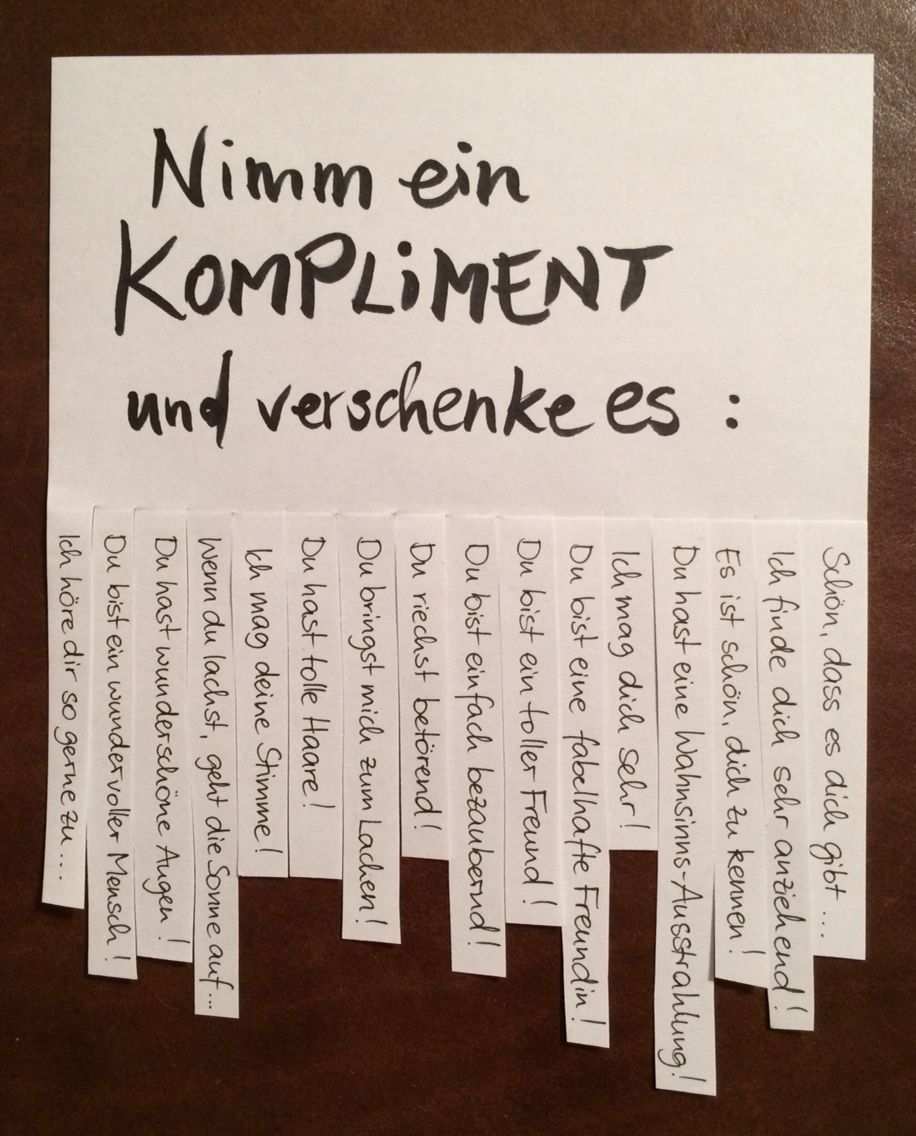 Nimm ein
KOMPLiMENT
und verschenke es :
Ich höre dir so gerne zu...
Du bist ein wundervoller Mensch!
Du hast wunderschöne Augen!
Wenn du lachst, geht die Sonne auf...
Ich mag deine Stimme!
Du hast tolle Haare!
Du bringst mich zum Lachen!
Du riechst betörend!
Du bist einfach bezaubernd!
Du bist ein toller Freund!
Du bist eine fabelhafte Freundin!
Ich mag dich sehr!
Du hast eine Wahnsinns-Ausstrahlung!
Es ist schön, dich zu kennen!
Ich finde dich sehr anziehend!
Schön, dass es dich gibt...